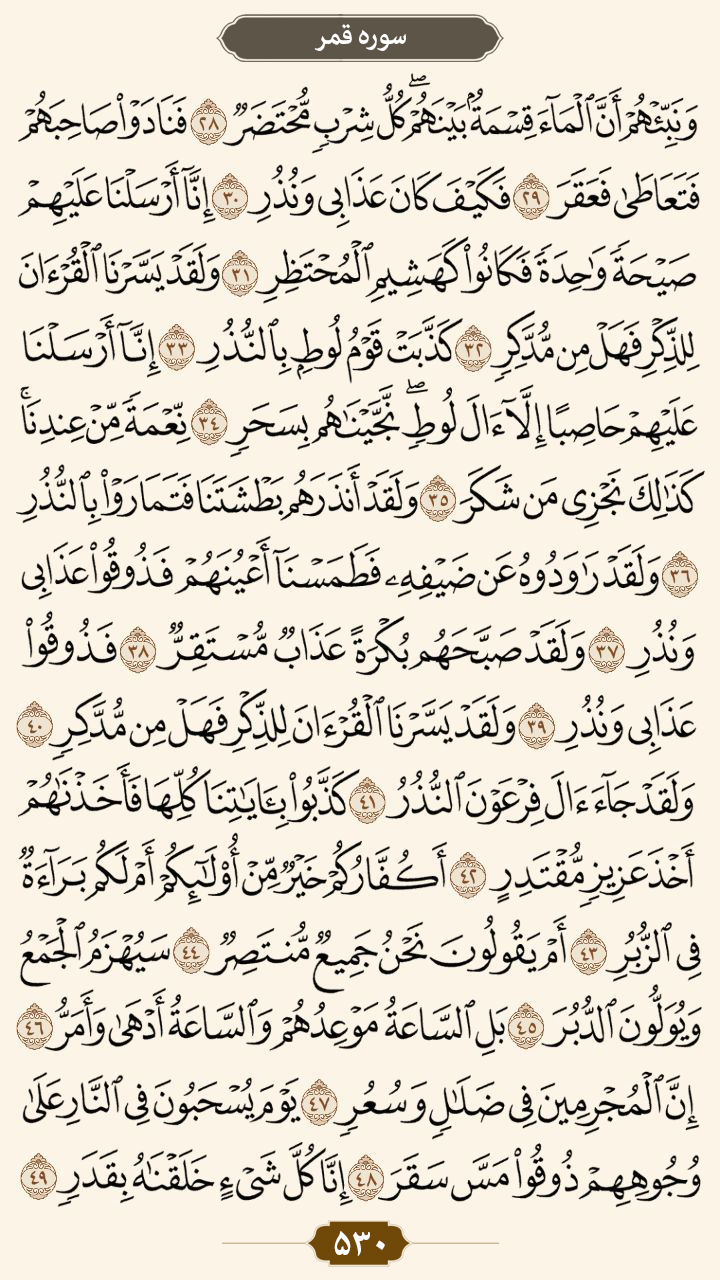 سوره قمر
وَنَبِّئْهُمْ أَنَّ ٱلْمَآءَ قِسْمَةٌۢ بَيْنَهُمْ ۖ كُلُّ شِرْبٍ مُّحْتَضَرٌ ٢٨ فَنَادَوْا۟ صَاحِبَهُمْ
فَتَعَاطَىٰ فَعَقَرَ ٢٩ فَكَيْفَ كَانَ عَذَابِى وَنُذُرِ ٣٠ إِنَّآ أَرْسَلْنَا عَلَيْهِمْ
صَيْحَةً وَٰحِدَةً فَكَانُوا۟ كَهَشِيمِ ٱلْمُحْتَظِرِ ٣١ وَلَقَدْ يَسَّرْنَا ٱلْقُرْءَانَ
لِلذِّكْرِ فَهَلْ مِن مُّدَّكِرٍ ٣٢ كَذَّبَتْ قَوْمُ لُوطٍۭ بِٱلنُّذُرِ ٣٣ إِنَّآ أَرْسَلْنَا
عَلَيْهِمْ حَاصِبًا إِلَّآ ءَالَ لُوطٍ ۖ نَّجَّيْنَٰهُم بِسَحَرٍ ٣٤ نِّعْمَةً مِّنْ عِندِنَا ۚ
كَذَٰلِكَ نَجْزِى مَن شَكَرَ ٣٥ وَلَقَدْ أَنذَرَهُم بَطْشَتَنَا فَتَمَارَوْا۟ بِٱلنُّذُرِ
٣٦ وَلَقَدْ رَٰوَدُوهُ عَن ضَيْفِهِۦ فَطَمَسْنَآ أَعْيُنَهُمْ فَذُوقُوا۟ عَذَابِى
وَنُذُرِ ٣٧ وَلَقَدْ صَبَّحَهُم بُكْرَةً عَذَابٌ مُّسْتَقِرٌّ ٣٨ فَذُوقُوا۟
عَذَابِى وَنُذُرِ ٣٩ وَلَقَدْ يَسَّرْنَا ٱلْقُرْءَانَ لِلذِّكْرِ فَهَلْ مِن مُّدَّكِرٍ ٤٠
وَلَقَدْ جَآءَ ءَالَ فِرْعَوْنَ ٱلنُّذُرُ ٤١ كَذَّبُوا۟ بِـَٔايَٰتِنَا كُلِّهَا فَأَخَذْنَٰهُمْ
أَخْذَ عَزِيزٍ مُّقْتَدِرٍ ٤٢ أَكُفَّارُكُمْ خَيْرٌ مِّنْ أُو۟لَٰٓئِكُمْ أَمْ لَكُم بَرَآءَةٌ
فِى ٱلزُّبُرِ ٤٣ أَمْ يَقُولُونَ نَحْنُ جَمِيعٌ مُّنتَصِرٌ ٤٤ سَيُهْزَمُ ٱلْجَمْعُ
وَيُوَلُّونَ ٱلدُّبُرَ ٤٥ بَلِ ٱلسَّاعَةُ مَوْعِدُهُمْ وَٱلسَّاعَةُ أَدْهَىٰ وَأَمَرُّ ٤٦
إِنَّ ٱلْمُجْرِمِينَ فِى ضَلَٰلٍ وَسُعُرٍ ٤٧ يَوْمَ يُسْحَبُونَ فِى ٱلنَّارِ عَلَىٰ
وُجُوهِهِمْ ذُوقُوا۟ مَسَّ سَقَرَ ٤٨ إِنَّا كُلَّ شَىْءٍ خَلَقْنَٰهُ بِقَدَرٍ ٤٩
۵۳۰